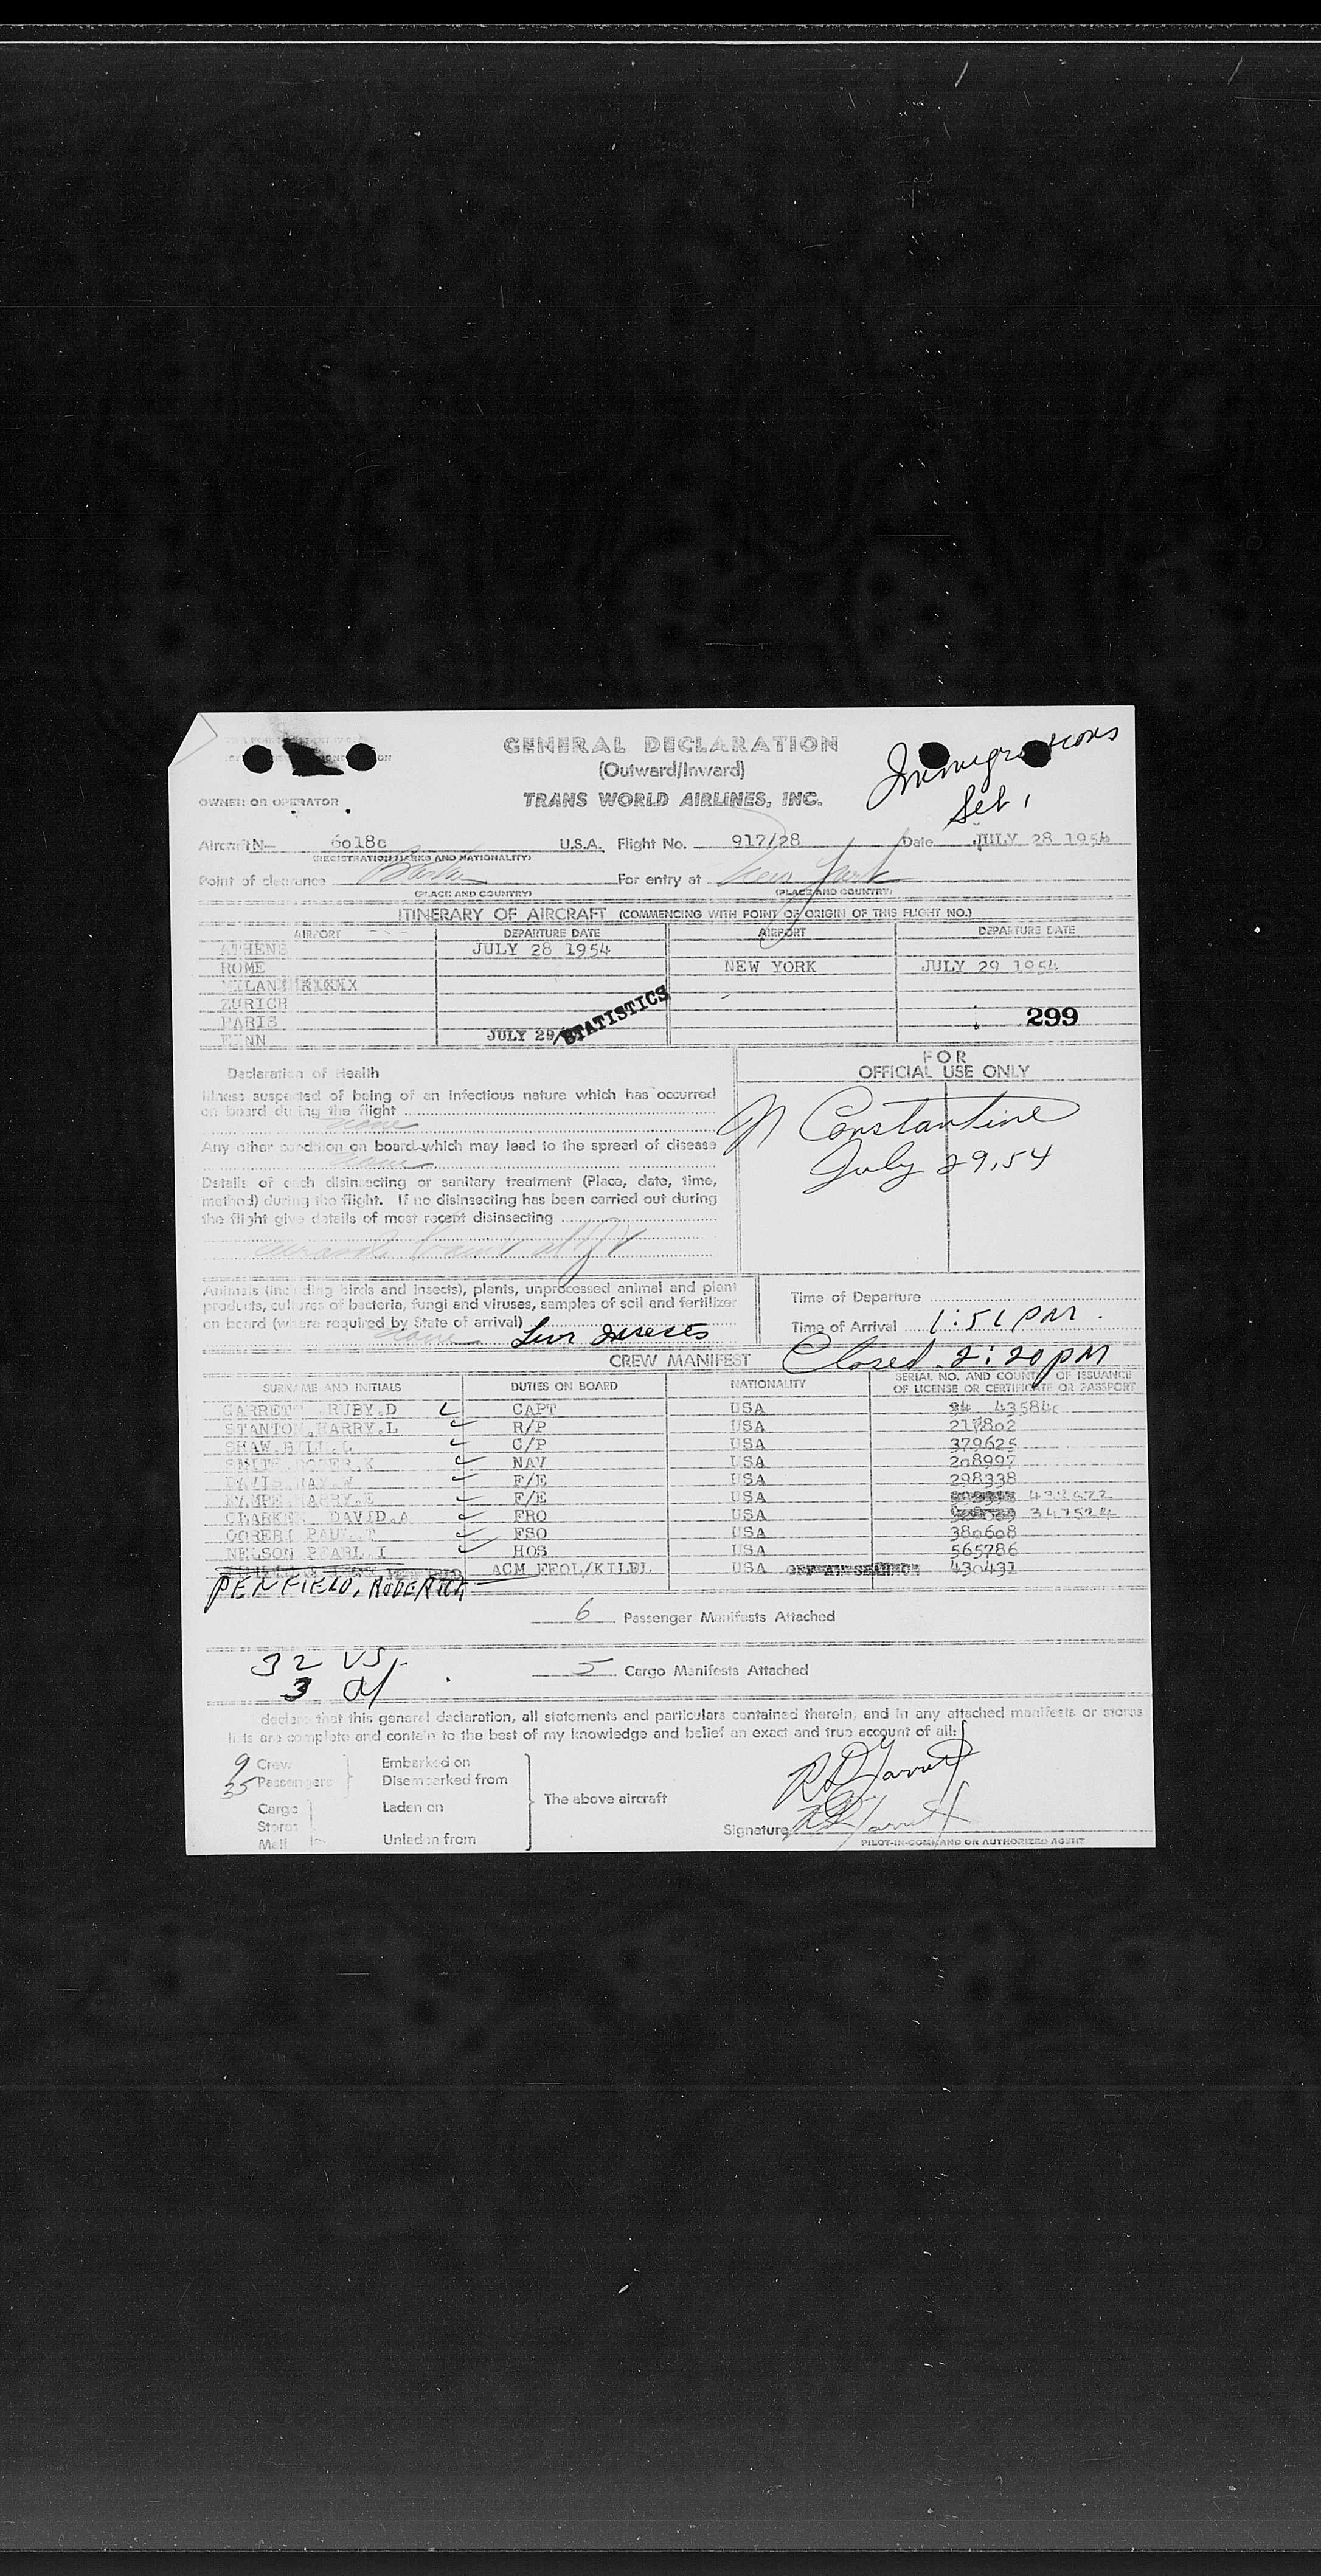 GENERAL DECLARATION
(Outward/Inward)
OWNER OR OPERATOR TRANS WORLD AIRLINES, INC.
Immigrations
Set 1
Aircraft N— 6018c U.S.A. Flight No. 917/28 Date JULY 28 1954
(REGISTRATION MARKS AND NATIONALITY)
Point of clearance For entry at New York
(PLACE AND COUNTRY) (PLACE AND COUNTRY)
ITINERARY OF AIRCRAFT (COMMENCING WITH POINT OF ORIGIN OF THIS FLIGHT NO.)
AIRPORT DEPARTURE DATE AIRPORT DEPARTURE DATE
ATHENS JULY 28 1954
ROME NEW YORK JULY 29 1954
MILAN
ZURICH
PARIS 299
JULY 29/STATISTICS
FOR
OFFICIAL USE ONLY
Declaration of Health
Illness suspected of being of an infectious nature which has occurred
on board during the flight
none
Any other condition on board which may lead to the spread of disease
none
Details of each disinsecting or sanitary treatment (Place, date, time,
method) during the flight. If no disinsecting has been carried out during
the flight give details of most recent disinsecting
N Constantine
July 29, 54
Animals (including birds and insects), plants, unprocessed animal and plant
products, cultures of bacteria, fungi and viruses, samples of soil and fertilizer
on board (where required by State of arrival)
none Live Insects
Time of Departure
Time of Arrival 1:51 PM.
Closed 2:20 PM
CREW MANIFEST
SURNAME AND INITIALS DUTIES ON BOARD NATIONALITY SERIAL NO. AND COUNTRY OF ISSUANCE
OF LICENSE OR CERTIFICATE OR PASSPORT
GARRETT RUBY.D CAPT USA 43584c
STANTON.HARRY.L R/P USA 217802
SHAW.BILL.L C/P USA 379625
SMITH ROGER.K NAV USA 208997
DAVIS F/E USA 298338
F/E USA 433672
CLARKE DAVID.A FRO USA 347524
PAUL.T FSO USA 380608
NELSON PEARL I HOS USA 565786
ACM FEOL/KILBL USA OFF AT SHANNON 430431
PENFIELD, RODERICK
6 Passenger Manifests Attached
32 US
3 al
5 Cargo Manifests Attached
declare that this general declaration, all statements and particulars contained therein, and in any attached manifests or stores
lists are complete and contain to the best of my knowledge and belief an exact and true account of all:
9 Crew Embarked on
35 Passengers Disembarked from
The above aircraft
Cargo Laden on
Stores
Mail Unladen from
R D Garrett
Signature R D Garrett
PILOT-IN-COMMAND OR AUTHORIZED AGENT